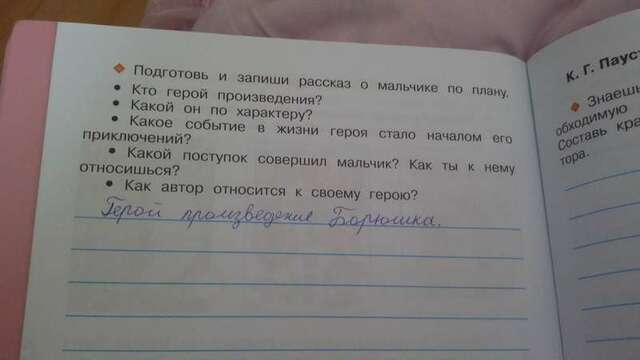 Подготовь и запиши рассказ о мальчике по плану.
• Кто герой произведения?
• Какой он по характеру?
• Какое событие в жизни героя стало началом его
приключений?
• Какой поступок совершил мальчик? Как ты к нему
относишься?
• Как автор относится к своему герою?
Герой произведение Борюшка.
К. Г. Пауст
Знаешь
обходимую
Составь кра
тора.